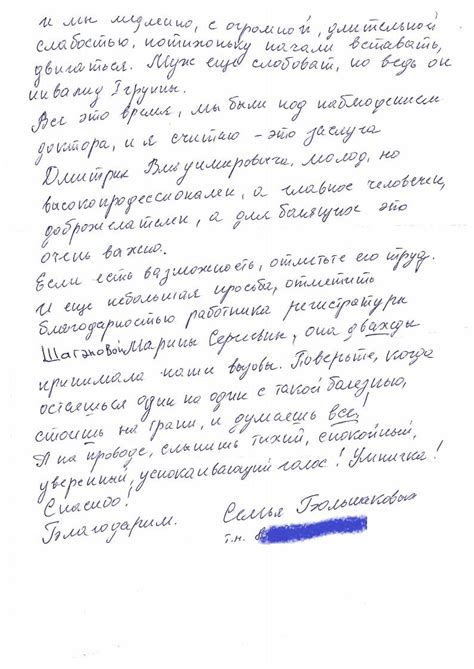 и мы медленно, с огромной, длительной
слабостью, потихоньку начали вставать,
двигаться. Муж еще слабоват, но ведь он
инвалид I группы.
Все это время, мы были под наблюдением
доктора, и я считаю - это заслуга
Дмитрия Владимировича, молод, но
высокопрофессионален, а главное человечен,
доброжелателен, а для болящих это
очень важно.
Если есть вазможность, отметьте его труд.
И еще небольшая просьба, отметить
благодарностью работника регистратуры
Шагановой Марины Сергевны, она дважды
принимала наши вызовы. Поверьте, когда
остаешься один на один с такой болезнью,
стоишь на грани, и думаешь все!
А на проводе, слышишь тихий, спокойный,
уверенный, успокаивающий голос! Умничка!
Спасибо!
Благодарим. Семья Гюльмаковых
т.н.